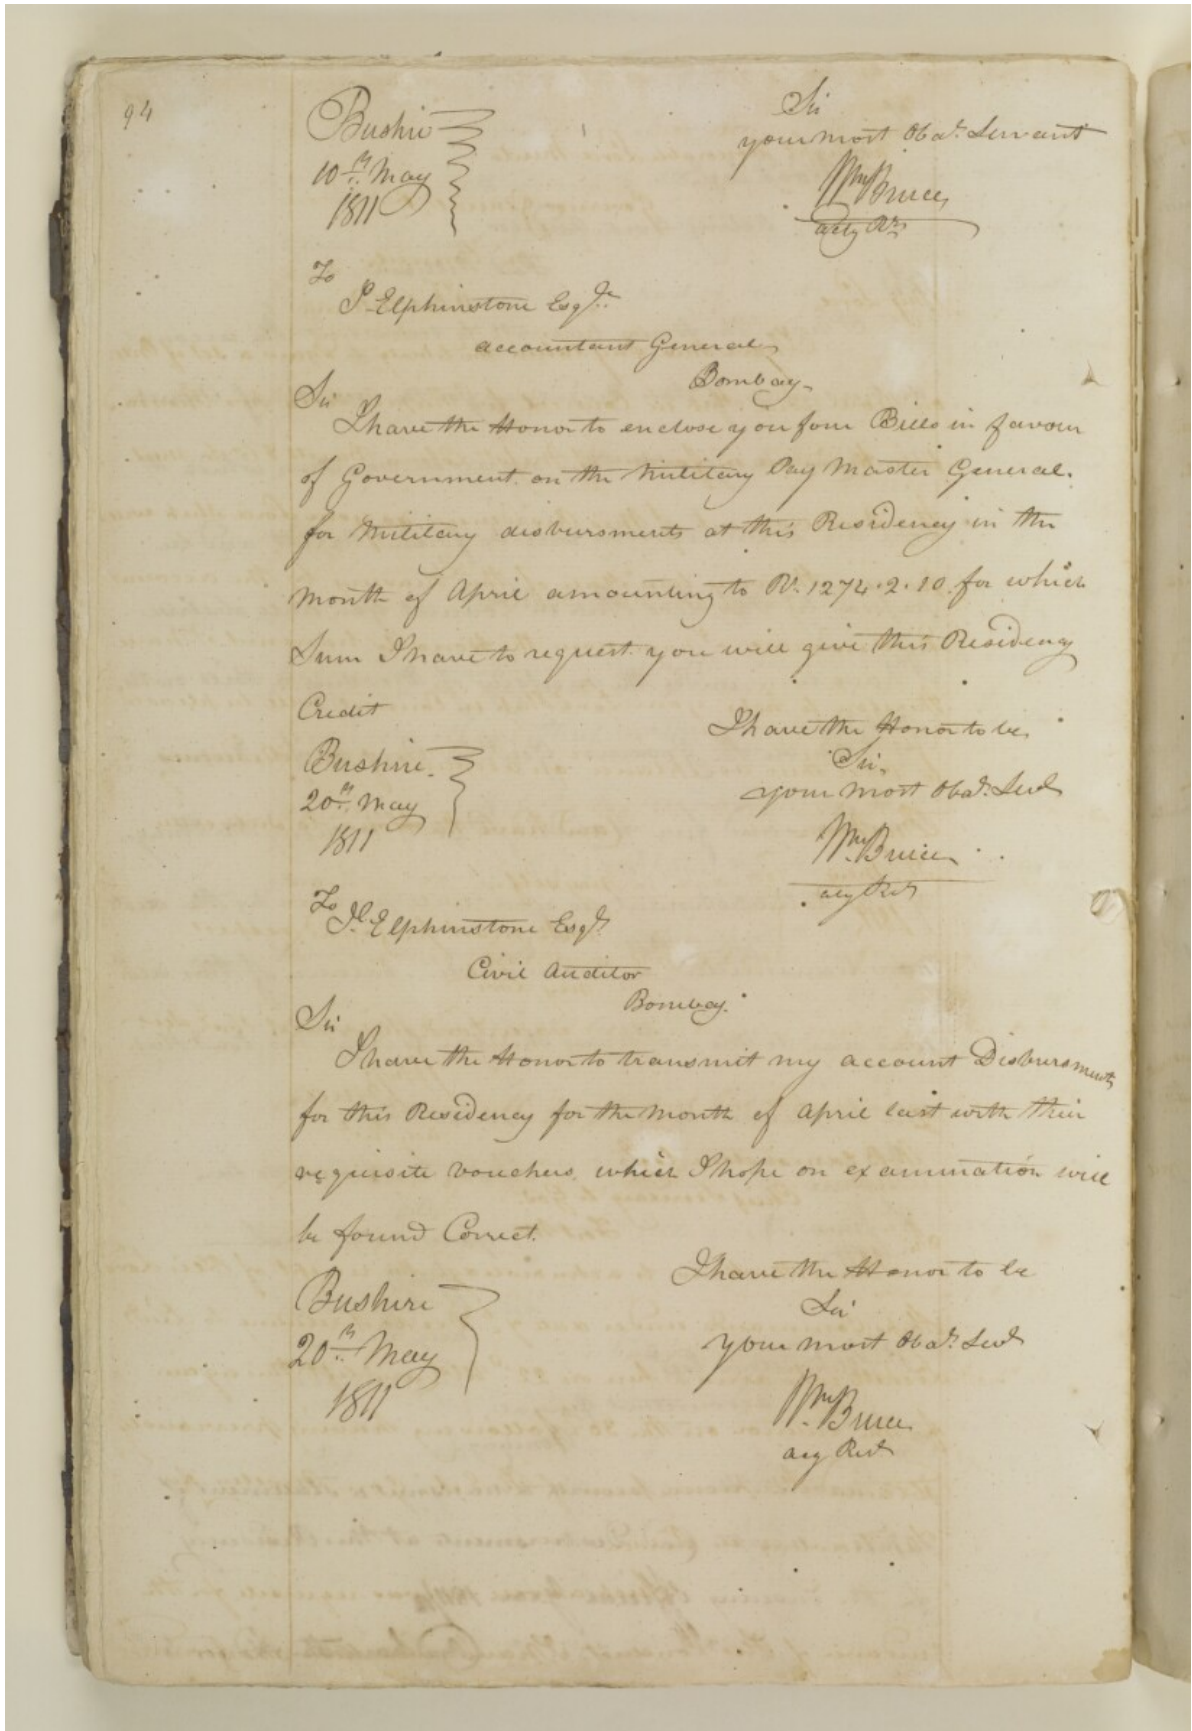 94
Sir
your most Obdt. Servant
Wm Bruce
actg Rt
Bushire
10th May
1811
To
J Elphinstone Esqre
accountant General
Bombay
Sir
I have the Honor to enclose you four Bills in favour
of Government on the Military Pay Master General
for Military disbursments at this Residency in the
month of April amounting to Rs. 1274.2.10 for which
Sum I have to request you will give this Residency
Credit
I have the Honor to be
Sir
your most Obdt. Servt
Wm Bruce
acg Rest
Bushire
20th May
1811
To
Elphinstone Esqr
Civil Auditor
Bombay
Sir
I have the Honor to transmit my account Disbursments
for this Residency for the month of April last with their
requisite vouchers which I hope on examination will
be found Correct.
I have the Honor to be
Sir
your most Obdt. Servt
Wm Bruce
acg Rest
Bushire
20th May
1811